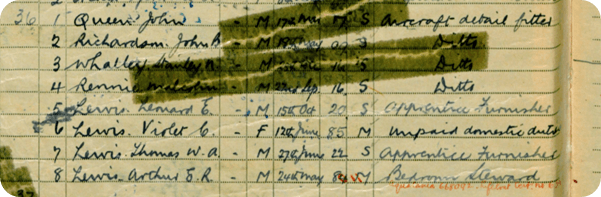 36 1 Queen John - M S Aircraft detail fitter
2 Richardson John - M S Ditto
3 Whalley Stanley - M 16 S Ditto
4 Rennie Malcolm - M 22nd Ap. 16 S Ditto
5 Lewis Leonard E. - M 15th Oct 20 S Apprentice Furnisher
6 Lewis Violet C. - F 12th June 85 M Unpaid domestic duties
7 Lewis Thomas W. A. - M 27th June 22 S Apprentice Furnisher
8 Lewis Arthur E. R. - M 24th May M Bedroom Steward
37